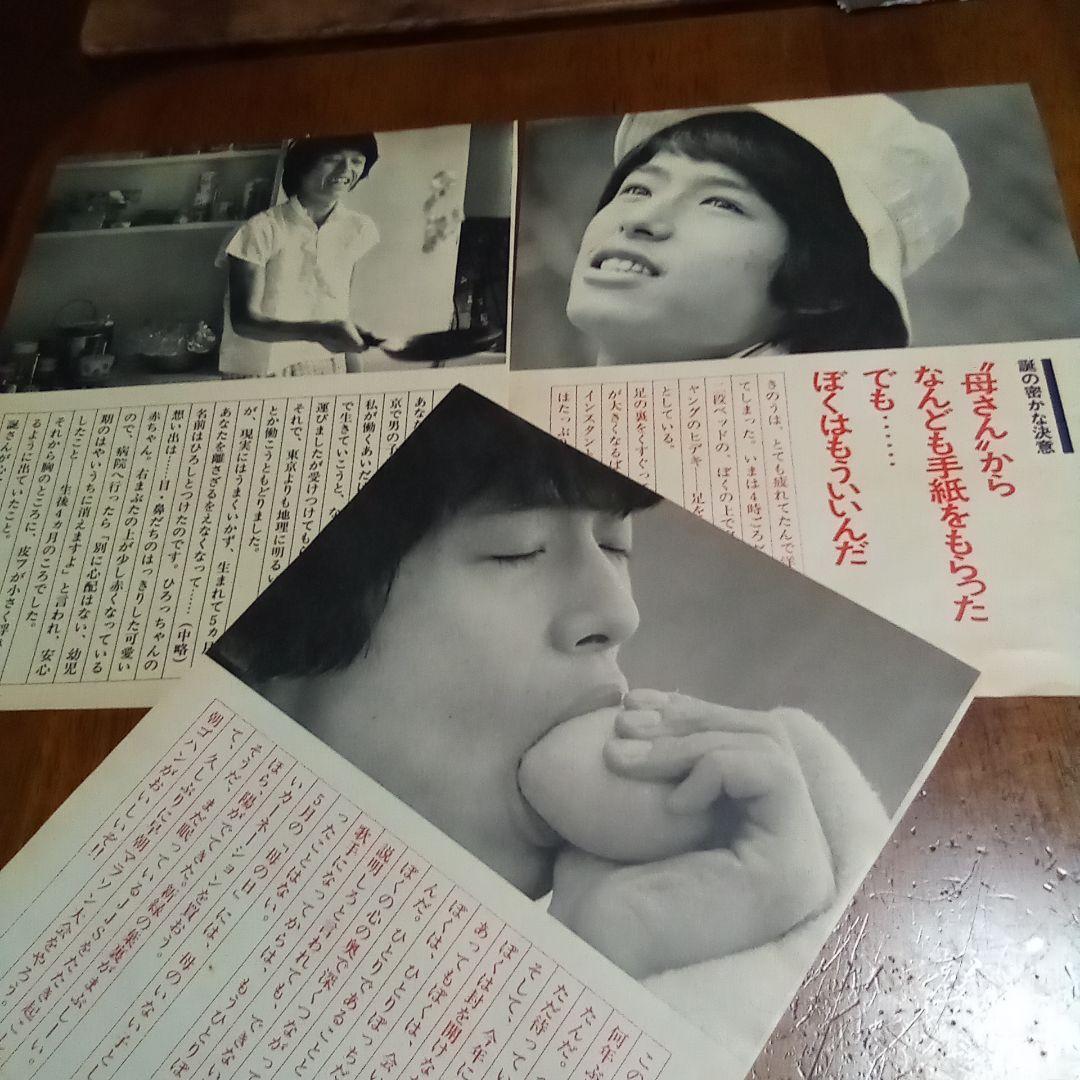 誕の密かな決意
〝母さん〟から
なんども手紙をもらった
でも……
ぼくはもういいんだ
きのうは、とても疲れてたんで洋
てしまった。いまは4時ごろ
二段ベッドの、ぼくの上で
ヤングのヒデキ―足を
としている。
足の裏をくすぐっ
が大きくなるば
インスタント
はたっぷ
あなた
京で男の
私が働くあいだ
で生きていこうと、な
運びましたが受けつけてもら
それで、東京よりも地理に明るい
とか働こうともどりました。
が、現実にはうまくいかず、
あなたを離さざるをえなくなって……(中略)
名前はひろしとつけたのです。ひろっちゃんの
想い出は……目・鼻だちのはっきりした可愛い
赤ちゃん。右まぶたの上が少し赤くなっている
ので、病院へ行ったら「別に心配はない、幼児
期のはやいうちに消えますよ」と言われ、安心
したこと―生後4ヵ月のころでした。
それから胸のところに、皮フが小さく浮き
るように出ていたこと。
この
何年
たんだ。
ただ待ってい
そして、今年に
ぼくは封を開けな
あってもぼくは、会い
ぼくは、ひとりぼっちだ
んだ。ひとりであることと
ぼくの心の奥で深くつながっ
説明しろと言われても、できない
歌手になってからは、もうひとりぼ
ったことはない。
5月の「母の日」には、母のいない子とし
いカーネーションを買おう。
そうだ、
ほら、陽がでてきた。新緑の葉裏がまぶしー
て、まだ眠っているJJSをたたき起こ
久しぶりに早朝マラソン大会をやろう。
朝ゴハンがおいしいぞ!!